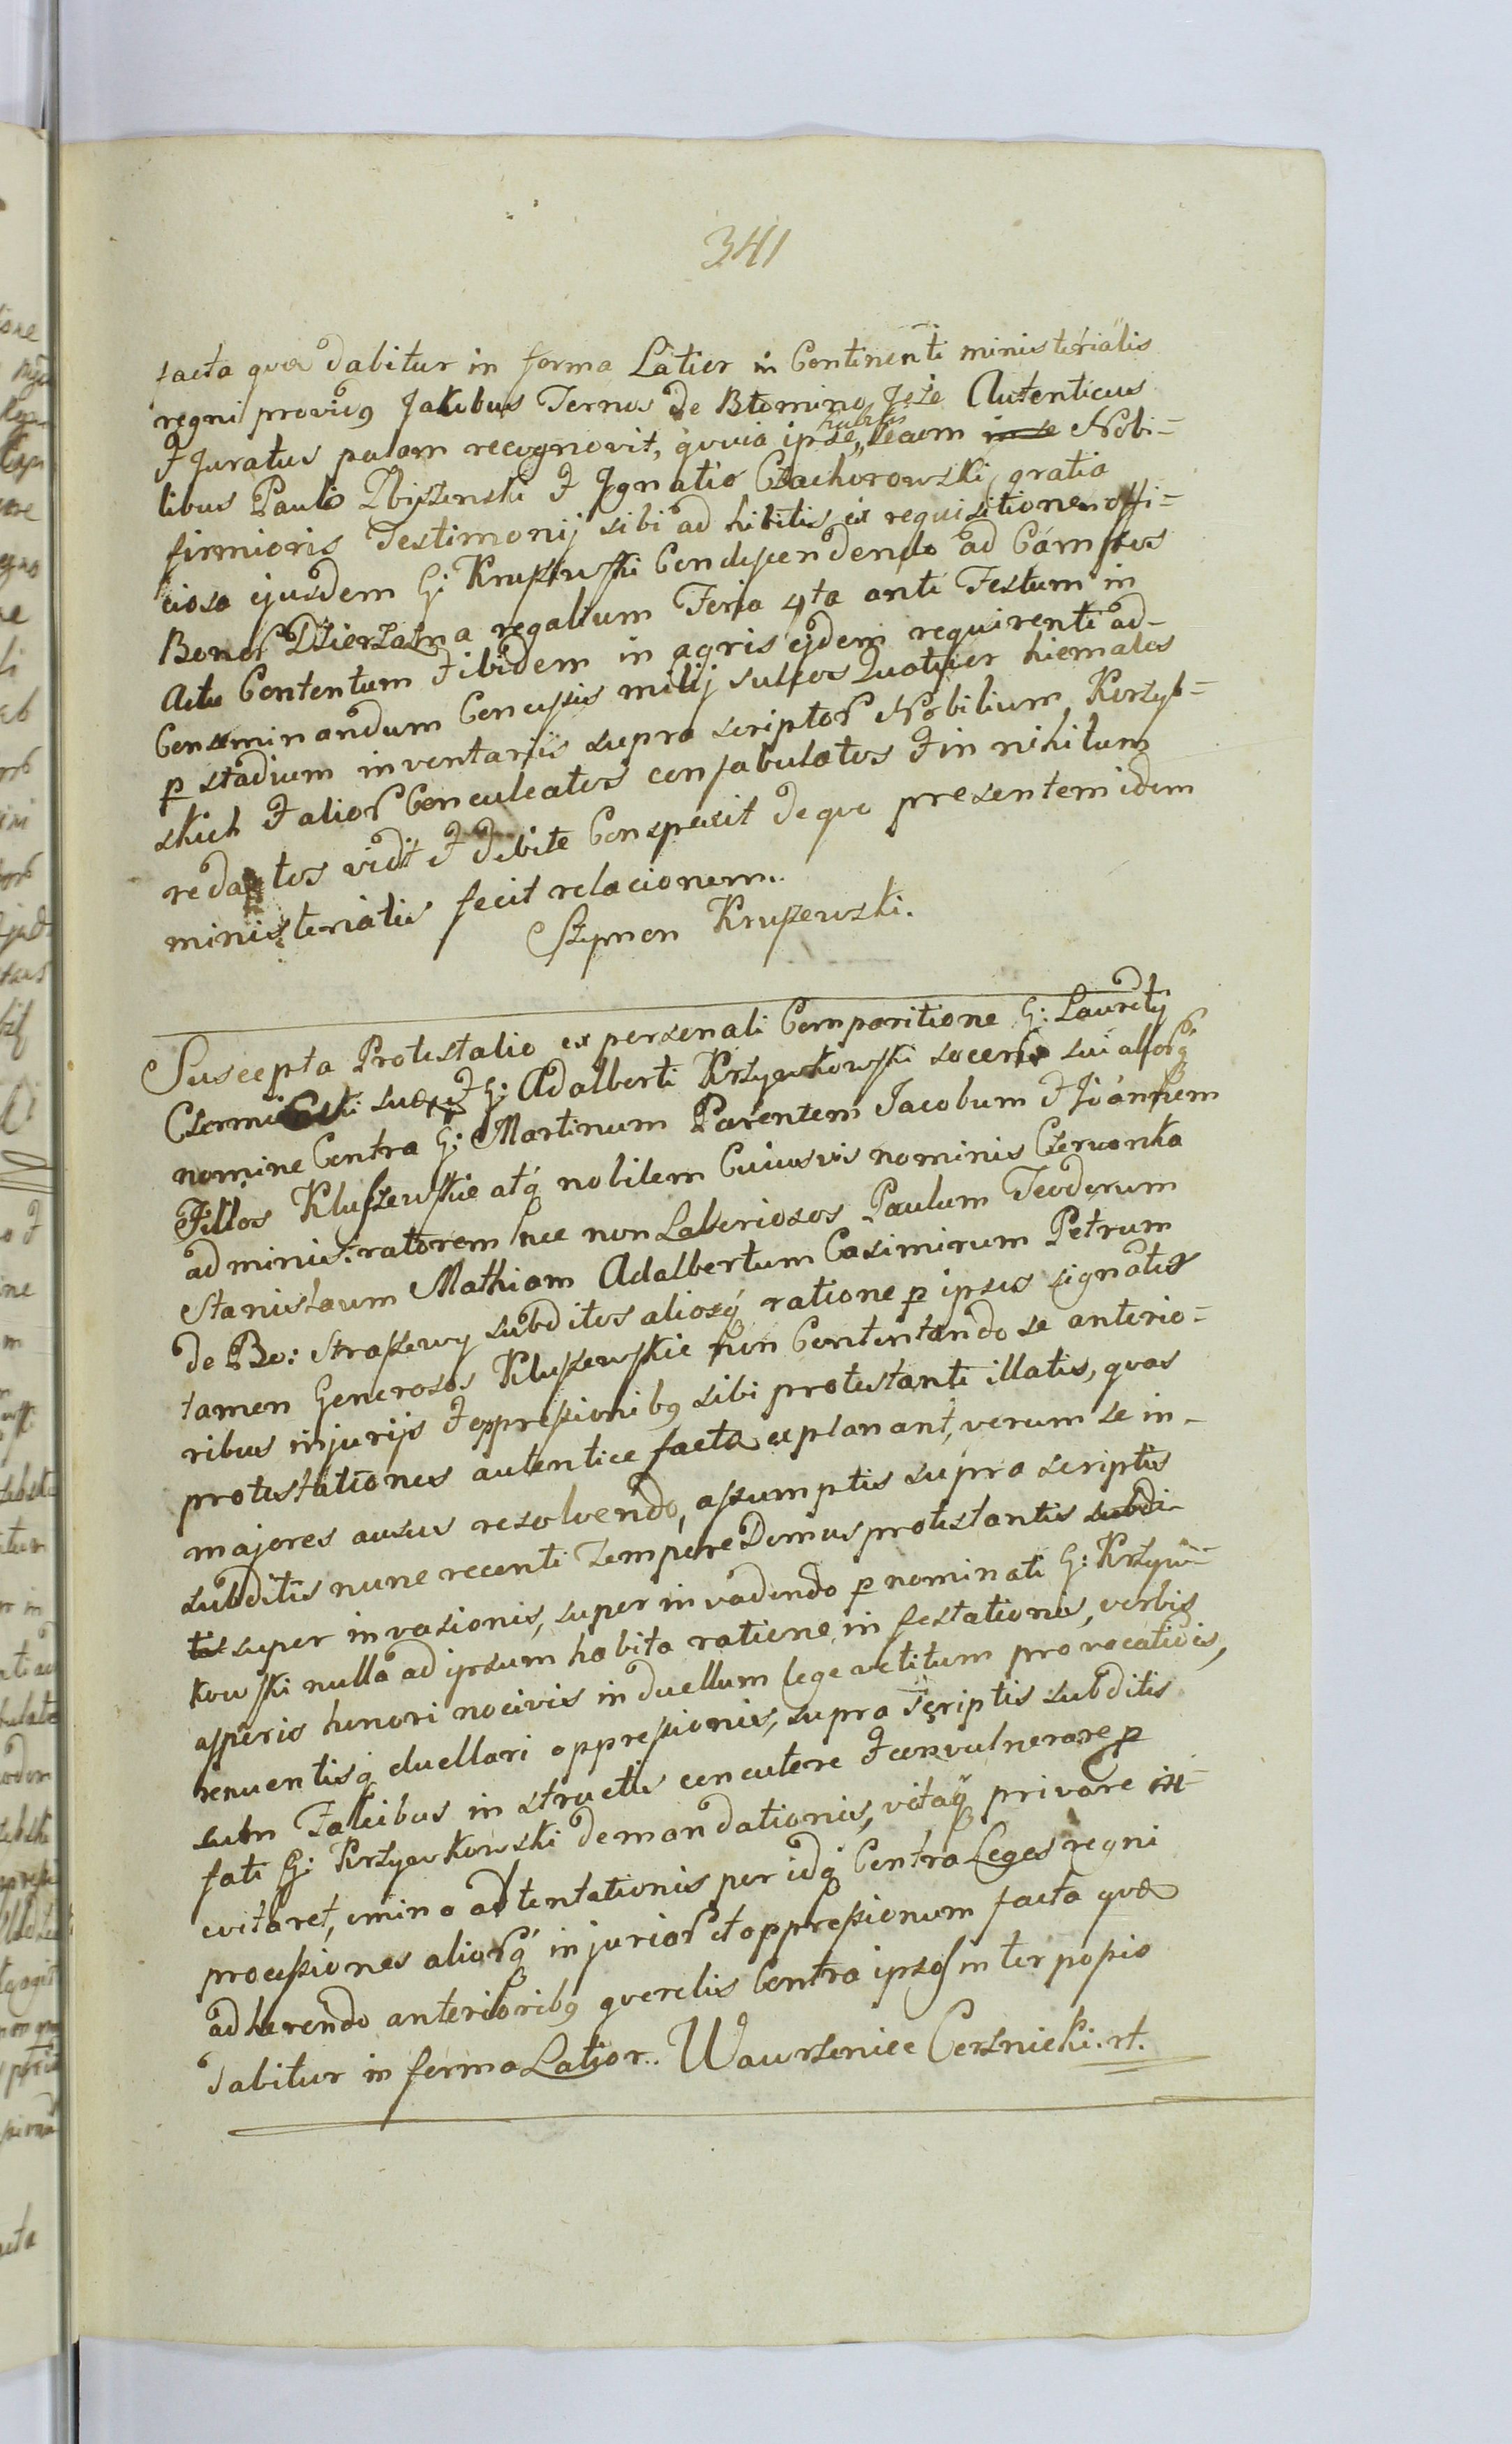 341
facta quæ dabitur in forma Latior in Continenti ministerialis
regni providg Jakobus Ternos de Blomino Jeże Autenticus
& Juratus palam recognovit, quuia ipse, habitis secum in se Nobi=
libus Paulo Zbyszenski & Ignatio Ciachorowski gratia
firmioris Testimonij sibi ad hibitis ex requisitione offi=
ciosa ejusdem G: Kruszewski Condescendendo ad Campos
Bonor Dzierzazna regalium Feria 4ta ante Festum in
Actu Contentum & ibidem in agris ejdem requirenti ad-
Conseminandum Concessis milij sulcos quatuor hiemales
p stadium inventariis supra scriptor Nobilium Korzyb=
skich & alior Conculcatos confabulatos & in nihilum
redactos vidit & debite Conspexit de quo presentem idem
ministerialis fecit relacionem..
Szymon Kruszewski.
Suscepta Protestatio ex personali Comparitione G: Laurenty
suo & G: Adalberti Krzywkowski soceri sui aliorq
nomine Contra G: Martinum Parentem Jacobum & Joannem
Filios Kluszewskie atq nobilem Cuiusvis nominis Czerwonka
administratorem nec non Laboriosos Paulum Teodorum
Stanislaum Mathiam Adalbertum Casimirum Petrum
de Bo: Straszewy subditos aliosq ratione p ipsos signatos
tamen Generosos Kluszewskie non Contentando se anterio=
ribus injurijs & oppressionibg sibi protestanti illatis, quas
protestationes autentice facta explanant, verum se in-
majores ausus resolvendo, assumptis supra scriptis
subditis nunc recenti tempore Domus protestantis subdi-
tis super invasionis, super invadendo p nominati G: Krzyw=
kowski nulla ad ipsum habita ratione, in festationis, verbis
asperis honori nocivis in duellum lege vetitum provocationis,
renuentisq duellari oppressionis, supra scriptis subditis
cum Falcibus in structis concutere & convulnerare p
fati G: Krzywkowski demandationis, vitaq privare in=
evitaret, omino adtentationis per idq Contra Leges regni
processiones aliorq injurior et oppressionum facta quæ
adhærendo anterioribg querelis Contra ipsos interposio
dabitur in forma Latior.. Wawrzeniec mt.